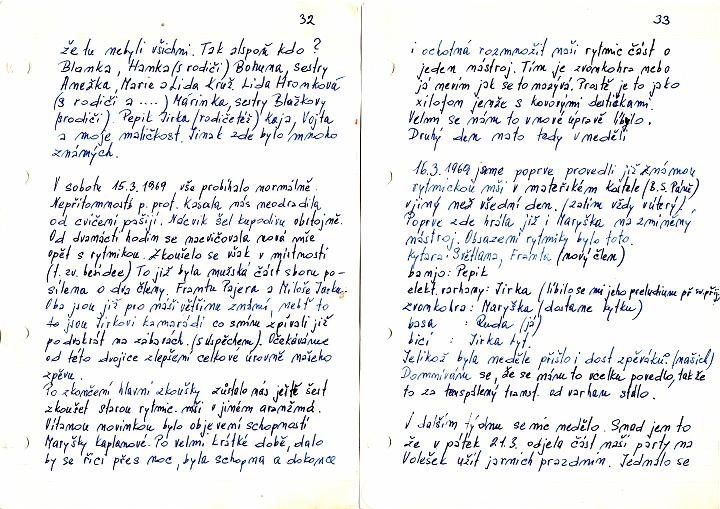 32
že tu nebyli všichni. Tak alespoň kdo?
Blanka, Hanka (s rodiči) Bohuna, sestry
Anežka, Marie a Lida Krůž. Lida Hromková
(s rodiči a ....) Marinka, sestry Blažkovy
(rodiči). Pepik Jirka (rodiče též) Kaja, Vojta
a moje maličkost. Jinak zde bylo mnoho
známých.
V sobotu 15.3.1969 vše probíhalo normálně.
Nepřítomnost p. prof. Kasala nás neodradila
od cvičení pašijí. Nácvik šel kupodivu obstojně.
Od dvanácti hodin se nacvičovala nová mše
opět s rytmikou. Zkoušelo se však v místnosti
(t. zv. besídce) To již byla mužská část sboru po-
silena o dva členy Frantu Pajera a Miloše Jarke.
Oba jsou již pro naši většinu známí, neboť to
to jsou Jirkovi kamarádi co snimi zpívali již
po dvakrát na zábavách. (s úspěchem). Očekáváme
od této dvojice zlepšení celkové úrovně našeho
zpěvu.
Po skončení hlavní zkoušky zůstalo nás ještě šest
zkoušet starou rytmic. mši v jiném aranžmá.
Vítanou novinkou bylo objevení schopností
Maryšky Kaplanové. Po velmi krátké době, dalo
by se říci přes noc, byla schopna a dokonce
33
i ochotná rozmnožit naši rytmic část o
jeden nástroj. Tím je zvonkohra nebo
já nevím jak se to nazývá. Prostě je to jako
xilofon jenže s kovovými destičkami.
Velmi se nám to v nové úpravě líbilo.
Druhý den nato tedy v neděli
16.3.1969 jsme poprve provedli již známou
rytmickou mši v mateřském kostele (B.S. Páně)
v jiný než všední den. (zatím vždy úterý)
Poprve zde hrála již i Maryška na zmíněný
nástroj. Obsazení rytmiky bylo toto.
Kytara: Světlana, Franta (nový člen)
banjo: Pepik
elekt. varhany: Jirka (libilo se mi jeho preludium při sv. přij.
zvonkohra: Maryška (dostane kytku)
basa : Ruda (já)
bicí : Jirka Byt.
Jelikož byla neděle přišlo i dost zpěváků. (našich)
Domnívám se, že se mánu to vcelka povedlo, takže
to za ten spálený transf. od varhan stálo.
V dalším týdnu se nic nedělo. Snad jen to
že v pátek 21.3. odjela část naší party na
Volešek užít jarních prazdnin. Jednalo se